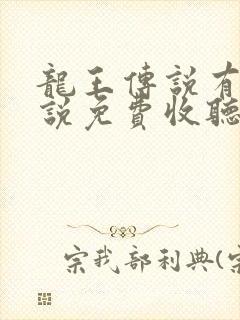 龍王傳說有
說免費收聽
宗我部利典(宗